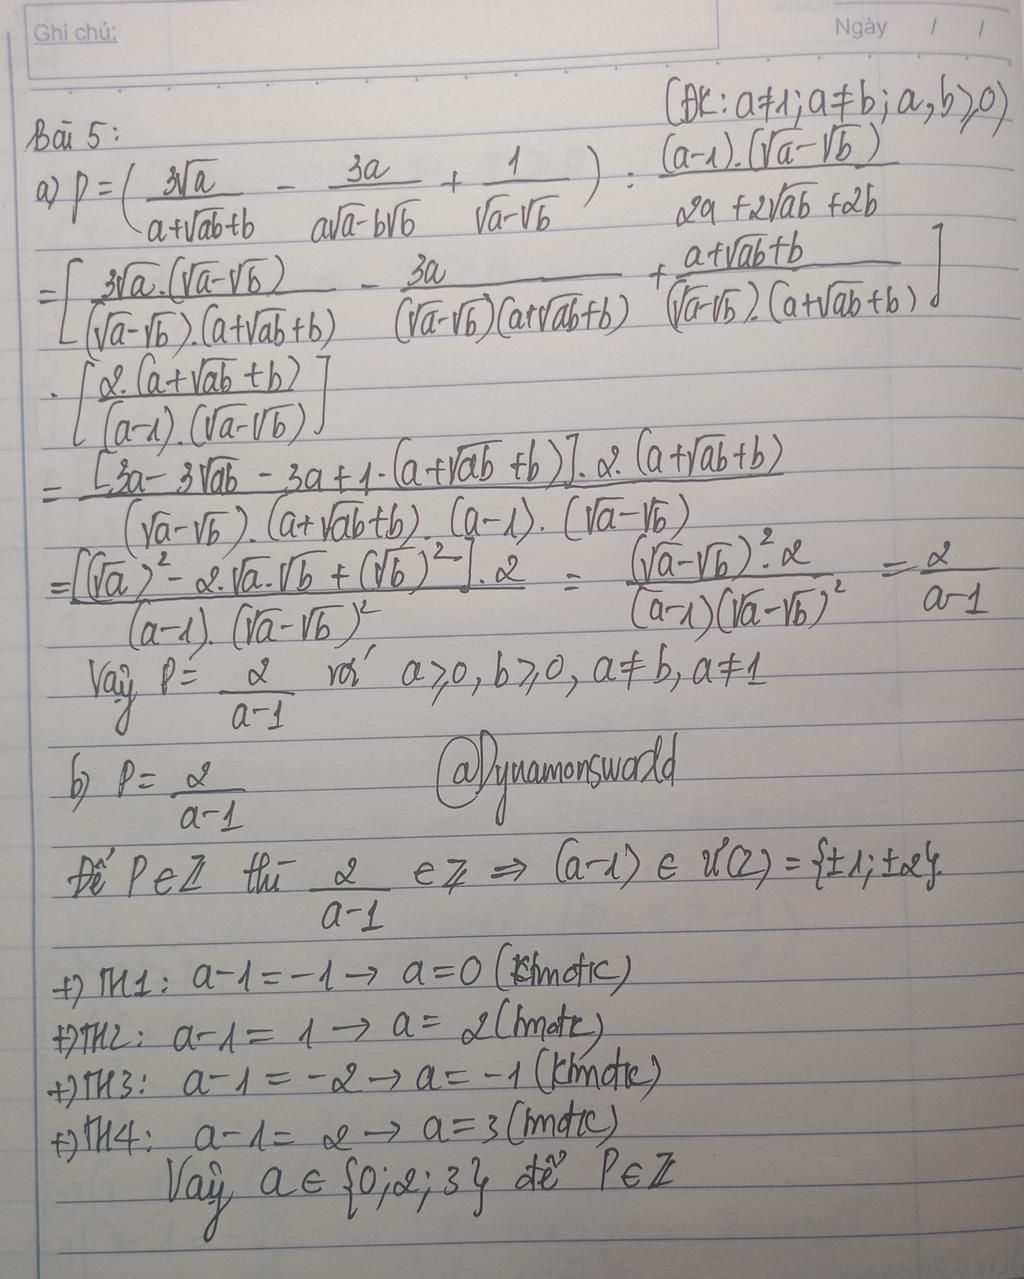 Ghi chú:
Ngày / /
(ĐK: a≠1; a≠b; a,b≥0)
Bài 5:
a) P = ( 3√a/(a+√ab+b) - 3a/(a√a-b√b) + 1/(√a-√b) ) : (a-1).(√a-√b)/(2a+2√ab+2b)
= [ 3√a.(√a-√b)/((√a-√b).(a+√ab+b)) - 3a/((√a-√b)(a+√ab+b)) + (a+√ab+b)/((√a-√b).(a+√ab+b)) ]
. [ 2.(a+√ab+b)/((a-1).(√a-√b)) ]
= [3a-3√ab-3a+1.(a+√ab+b)].2.(a+√ab+b)/((√a-√b).(a+√ab+b).(a-1).(√a-√b))
= [(√a)²-2.√a.√b+(√b)²].2/((a-1).(√a-√b)²) = (√a-√b)².2/((a-1)(√a-√b)²) = 2/(a-1)
Vậy P = 2/(a-1) với a≥0, b≥0, a≠b, a≠1
b) P = 2/(a-1) @Dynamonsworld
Để P∈Z thì 2/(a-1) ∈Z ⇒ (a-1) ∈ Ư(2) = {±1; ±2}
+) TH1: a-1=-1 → a=0 (tmđk)
+) TH2: a-1= 1 → a= 2 (tmđk)
+) TH3: a-1=-2 → a=-1 (ktmđk)
+) TH4: a-1= 2 → a=3 (tmđk)
Vậy a∈{0;2;3} để P∈Z